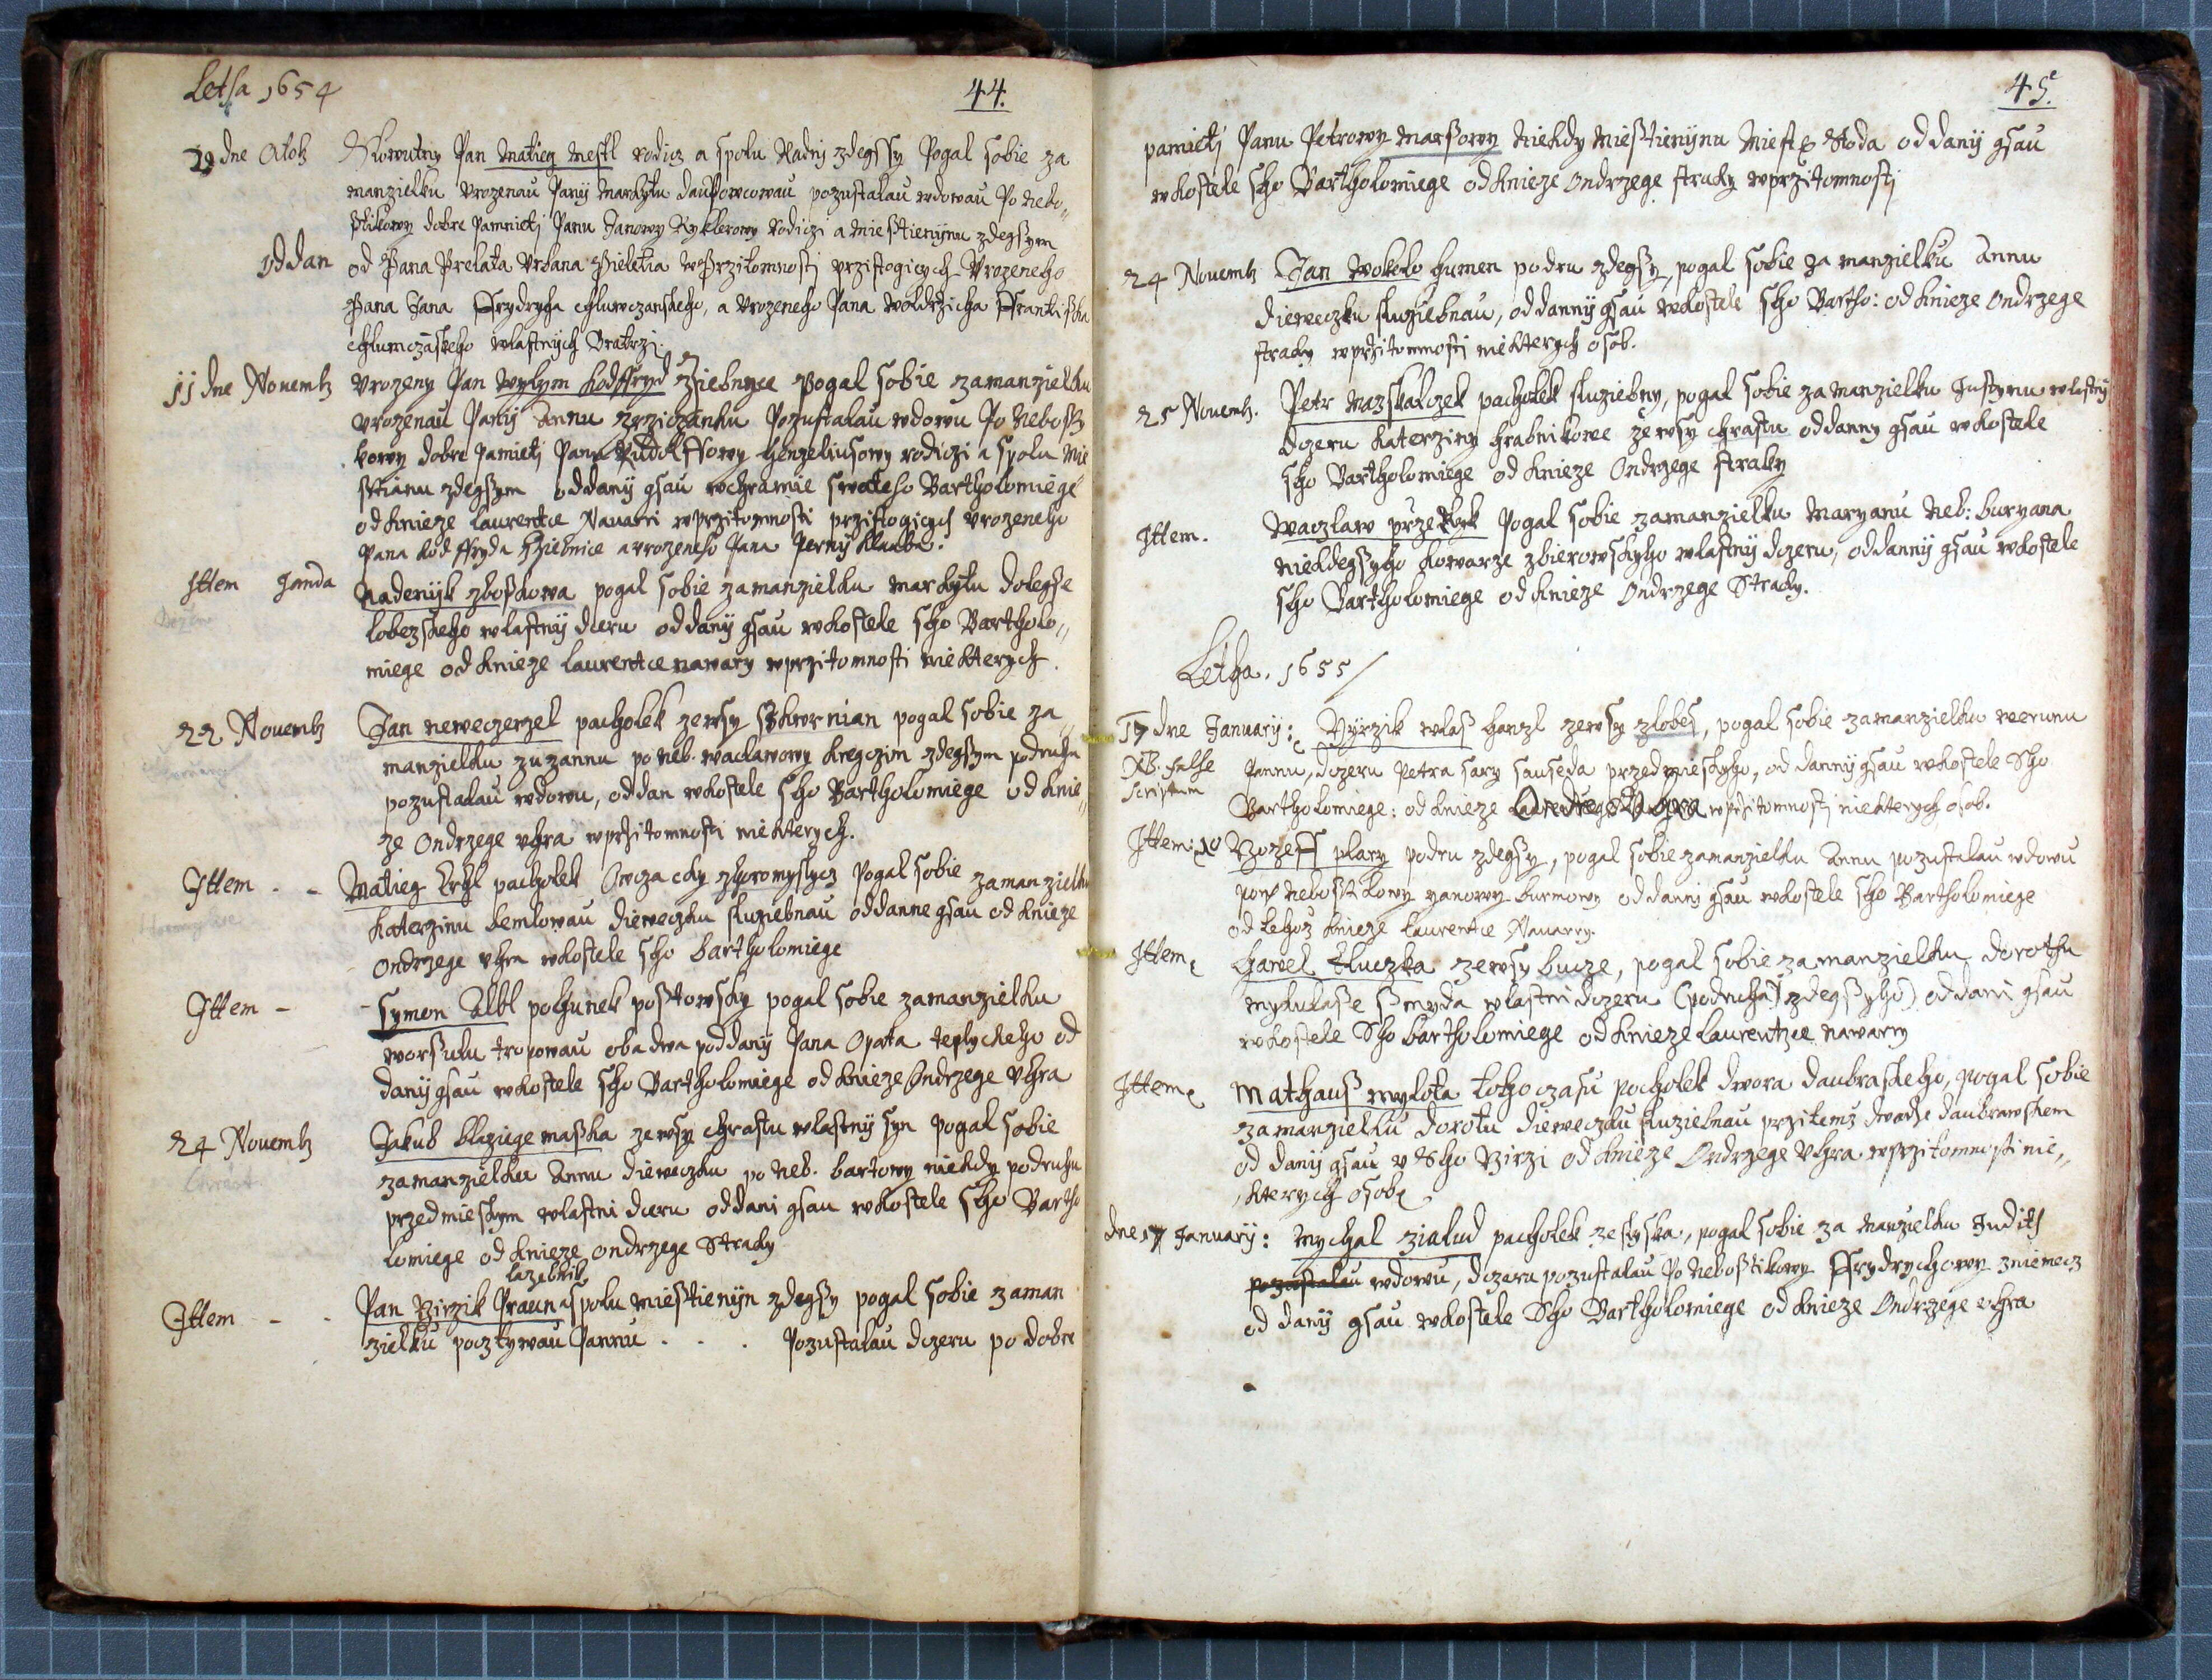 Letha 1654
44.
dne Octob Slowutny Pan Matieg Mestl rodicz a spolu Radnj zdegssy Pogal sobie za
manzielku Vrozenau Panij Markytu pozustalau wdowau Po nebo„
sstikowy dobre Pamnietj Panu Janowy Ryklerowy Rodiczi a Miesstienijnu zdegssym
oddan od Pana Prelata Vrbana w Przitomnosti przistogicych Vrozeneho
Pana Jana Ffrydrycha a Vrozeneho Pana Woldrzicha Ffrantisska
wlastnijch Bratrzj.
11 dne Nouemb Vrozeny Pan Wylym Kodffryd Pogal sobie zamanzielku
Vrozenau Panij Annu Pozustalau wdowu Po Neboss
kowy dobre Pamietj Panu Henzeliusowy rodiczi a spolu Mie
sstianu zdegssym oddanij gsau wchramie swateho Bartholomiege
od knieze Laurentce Nauarri wprzitomnosti przistogicych vrozeneho
Pana Kodffryda a vrozeneho Pana
Ittem Janda Nadenijk zbosskowa pogal sobie zamanzielku markytu dolegsse
lobezskeho wlastnij dceru oddanij gsau wkostele Sho Bartholo„
miege od knieze laurentce nawary wprzitomnosti niekterych.
22 Nouemb Jan neweczerzel pacholek zewsy sskwrnian pogal sobie za„
manzielku zuzannu po neb. waclawowy kregczim zdegssym podruhu
pozustalau wdowu, oddan wkostele Sho Bartholomiege od knie„
ze Ondrzege vhra wprzitomnosti niekterych.
Ittem - - Matieg krysl pacholek Owczacky Pogal sobie zamanzielku
Katerzinu bemlowau dieweczku sluziebnau oddanne gsau od knieze
Ondrzege vhra wkostele Sho bartholomiege
Ittem - Symon Albl pohunek posstowsky pogal sobie zamanzielku
worssulu troponau oba dwa poddanij Pana Opata teplyckeho od
danij gsau wkostele Sho Bartholomiege od knieze Ondrzege Vhra
24 Nouemb Jakub blaziege masska zewsy chrastu wlastnij syn pogal sobie
zamanzielku Annu dieweczku po neb. bartowy niekdy podruhu
przedmieskym wlastni dceru oddani gsau wkostele Sho Bartho
lomiege od knieze Ondrzege Stracky
lazebnik
Ittem - - Pan Birzik Praun a spolu miesstienijn zdegssy pogal sobie zaman
zielku pocztywau Pannu . . . Pozustalau dczeru po dobre
45.
pamietj Panu Petrowy Marssowy Niekdy Miesstienijnu Miesta oddanij gsau
wkostele Sho Bartholomiege od knieze Ondrzege stracky wprzitomnosti
24 Nouemb Jan Wokolo humen podru zdegssy, pogal sobie za manzielku Annu
dieweczku sluziebnau, oddannij gsau wkostele Sho Bartho: od knieze Ondrzege
stracky wprzitomnosti niekterych osob.
25 Nouemb. Petr Mazskalczek pacholek sluziebny, pogal sobie za manzielku Justynu wlastnij
dczeru katerziny hrabnikowe ze wsy chrastu oddanny gsau wkostele
Sho Bartholomiege od knieze Ondrzege stracky
Ittem. Waczlaw Pogal sobie zamanzielku Maryanu Neb: buryana
niekdegssyho kowarze zbierowskyho wlastnij dczeru, oddannij gsau wkostele
Sho Bartholomiege od knieze Ondrzege Stracky.
Letha. 1655
17 dne Januarij: Nijrzik wlass hanzl zewsy zlobes, pogal sobie zamanzielku werunu
NB. false Pannu, dczeru Petra sary sauseda przedmieskyho, od dannij gsau wkostele Sho
scriptum Bartholomiege: od knieze Ondrzege Vhra wprzitomnosti niekterych osob.
Ittem: 10 Bozeff plary podru zdegssy, pogal sobie zamanzielku Annu pozustalau wdowu
po nebosstikowy yanowy burmowy oddanij gsau wkostele Sho Bartholomiege
od tehoz knieze Laurentce Nauarry.
Ittem Hawel tluczka zewsy bucze, pogal sobie zamanzielku dorothu
mykulasse ssmyda wlastni dczeru (podruha zdegssyho) oddani gsau
wkostele Sho bartholomiege od knieze Laurentzce nawary
Ittem Mathauss mylota toho czasu pacholek dwora daubraskeho, pogal sobie
zamanzielku dorotu dieweczku sluziebnau przitemz dworze daubrawskem
od danij gsau v Sho Birzi od knieze Ondrzege Vhra wprzitomnosti nie„
kterych osob
dne 17 Januarij: Mychal zialud pacholek ze slyska, pogal sobie za manzielku Judith
pozustalau wdowu, dczeru pozustalau Po Nebosstikowy Ffrydrychowy zniemecz
od danij gsau wkostele Sho Bartholomiege od knieze Ondrzege vhra